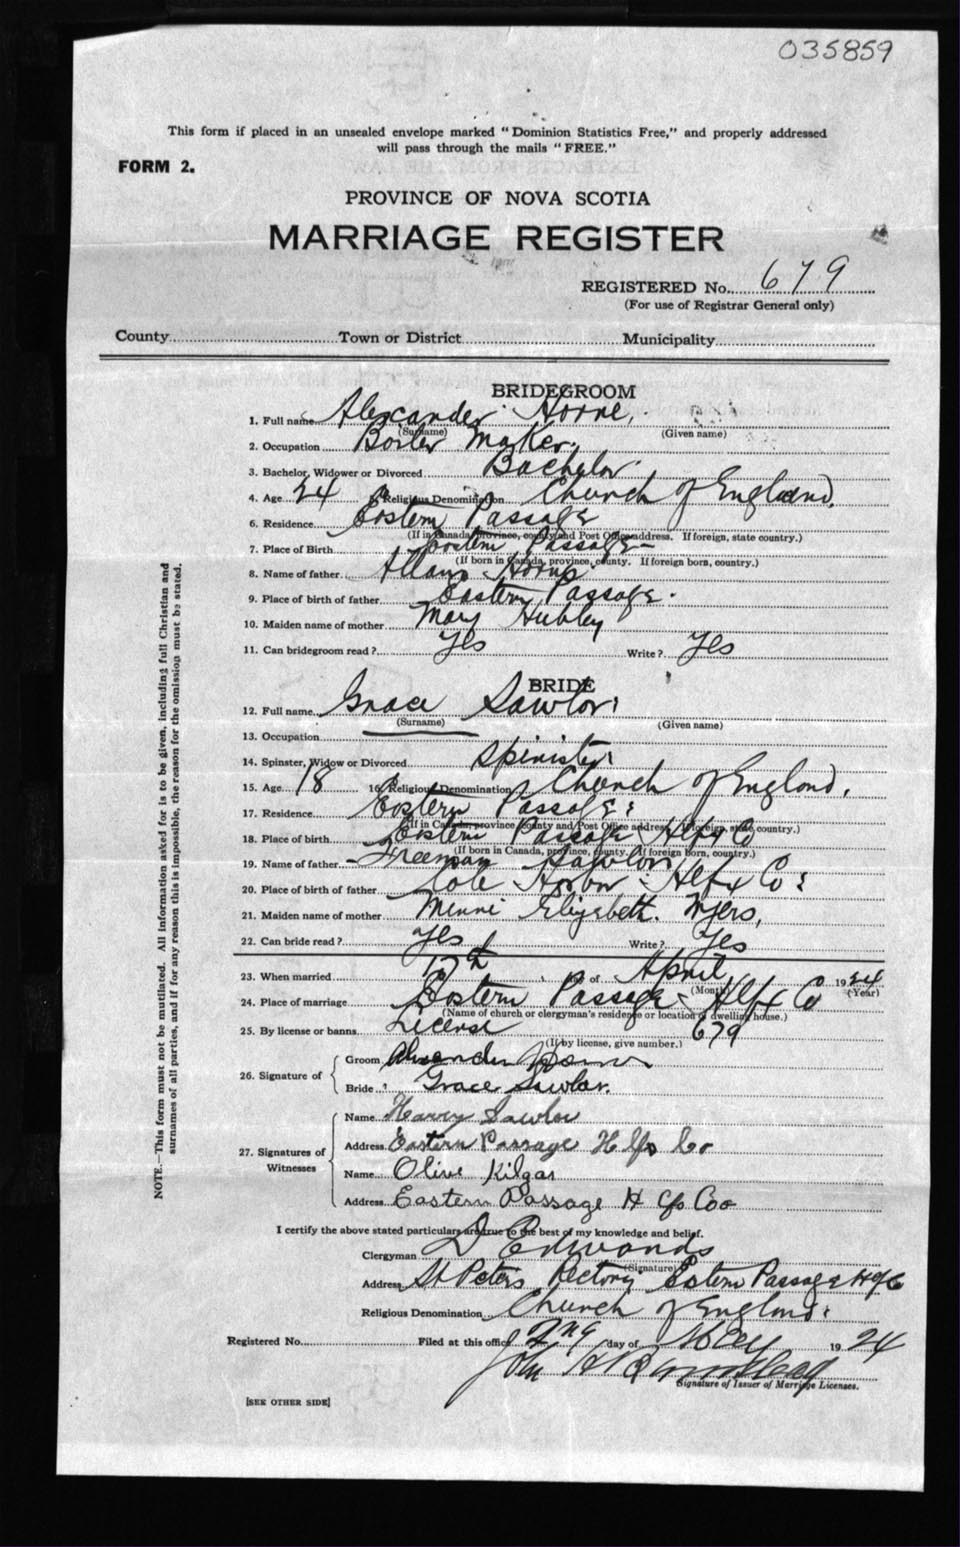 035859
This form if placed in an unsealed envelope marked "Dominion Statistics Free," and properly addressed
will pass through the mails "FREE."
FORM 2.
PROVINCE OF NOVA SCOTIA
MARRIAGE REGISTER
REGISTERED No. 679
(For use of Registrar General only)
County Town or District Municipality
BRIDEGROOM
1. Full name Alexander Horne,
(Surname) (Given name)
2. Occupation Boiler Maker.
3. Bachelor, Widower or Divorced Bachelor
4. Age 24 Religious Denomination Church of England.
6. Residence Eastern Passage
(If in Canada, province, county and Post Office address. If foreign, state country.)
7. Place of Birth Eastern Passage
(If born in Canada, province, county. If foreign born, country.)
8. Name of father Horne
9. Place of birth of father Eastern Passage.
10. Maiden name of mother Mary Hubley
11. Can bridegroom read? Yes Write? Yes
BRIDE
12. Full name Grace Sawlor
(Surname) (Given name)
13. Occupation
14. Spinster, Widow or Divorced Spinister
15. Age 18 16. Religious Denomination Church of England.
17. Residence Eastern Passage
(If in Canada, province county and Post Office address. If foreign, state country.)
18. Place of birth Eastern Passage Hlfx Co
(If born in Canada, province, county. If foreign born, country.)
19. Name of father Freeman Sawlor
20. Place of birth of father Cole Harbor Hlfx Co
21. Maiden name of mother Minni Elizebeth. Myers,
22. Can bride read? Yes Write? Yes
23. When married 17th day of April 1924
(Month) (Year)
24. Place of marriage Eastern Passage Hlfx Co
(Name of church or clergyman's residence or location of dwelling house.)
25. By license or banns License 679
(If by license, give number.)
26. Signature of
Groom Alexander Horne
Bride Grace Sawlor.
27. Signatures of Witnesses
Name Harry Sawlor
Address Eastern Passage Hlfx Co
Name Olive Kilgar
Address Eastern Passage H fx Co
I certify the above stated particulars are true to the best of my knowledge and belief.
Clergyman D Edwards
(Signature)
Address St Peters Rectory Estern Passage
Religious Denomination Church of England
Registered No. Filed at this office 2nd day of May 1924
John H
Signature of Issuer of Marriage Licenses.
[SEE OTHER SIDE]
NOTE.—This form must not be mutilated. All information asked for is to be given, including full Christian and
surnames of all parties, and if for any reason this is impossible, the reason for the omission must be stated.